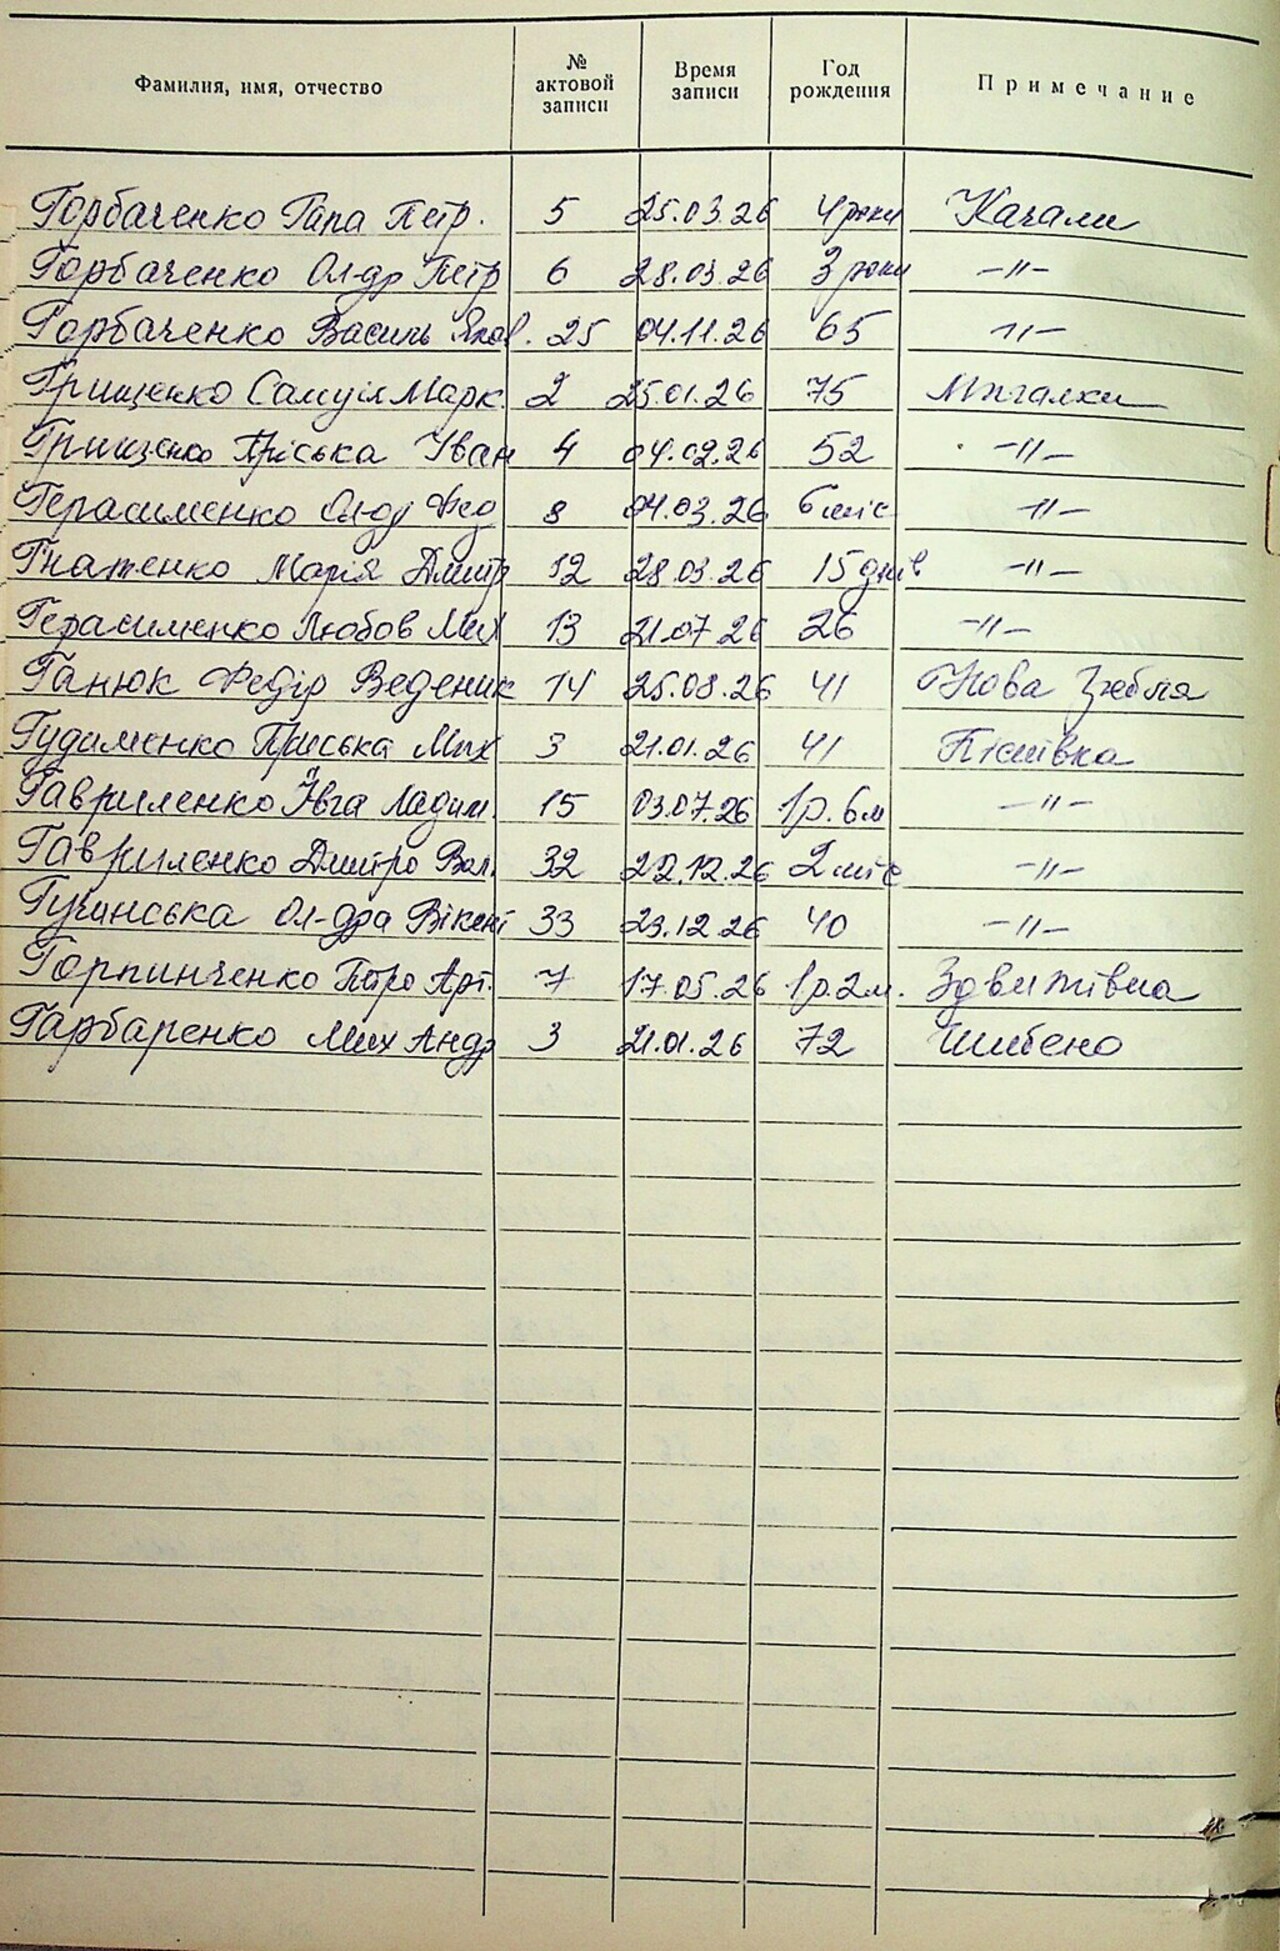 Фамилия, имя, отчество № актовой записи Время записи Год рождения Примечание
Горбаченко Гапа Петр. 5 25.03.26 4 роки Качали
Горбаченко Ол-др Петр 6 28.03.26 3 роки -"-
Горбаченко Василь Яков. 25 04.11.26 65 "-
Грищенко Самуіл Марк. 2 25.01.26 75 Мигалки
Грищенко Пріська Іван 4 04.02.26 52 -"-
Герасименко Ол-др Фед 8 04.03.26 6 міс "-
Гнатенко Марія Дмитр 12 28.03.26 15 днів -"-
Герасименко Любов Мих 13 21.07.26 26 -"-
Ганюк Федір Веденик 14 25.08.26 41 Нова Гребля
Гудименко Пріська Мих 3 21.01.26 41 Пісківка
Гавриленко Ївга Ладим. 15 03.07.26 1р. 6м -"-
Гавриленко Дмитро Вол. 32 22.12.26 2 міс -"-
Гучинська Ол-дра Вікент 33 23.12.26 40 -"-
Горпинченко Петро Арт. 7 17.05.26 1р.2м. Здвижівка
Гарбаренко Мих Андр 3 21.01.26 72 Шибено